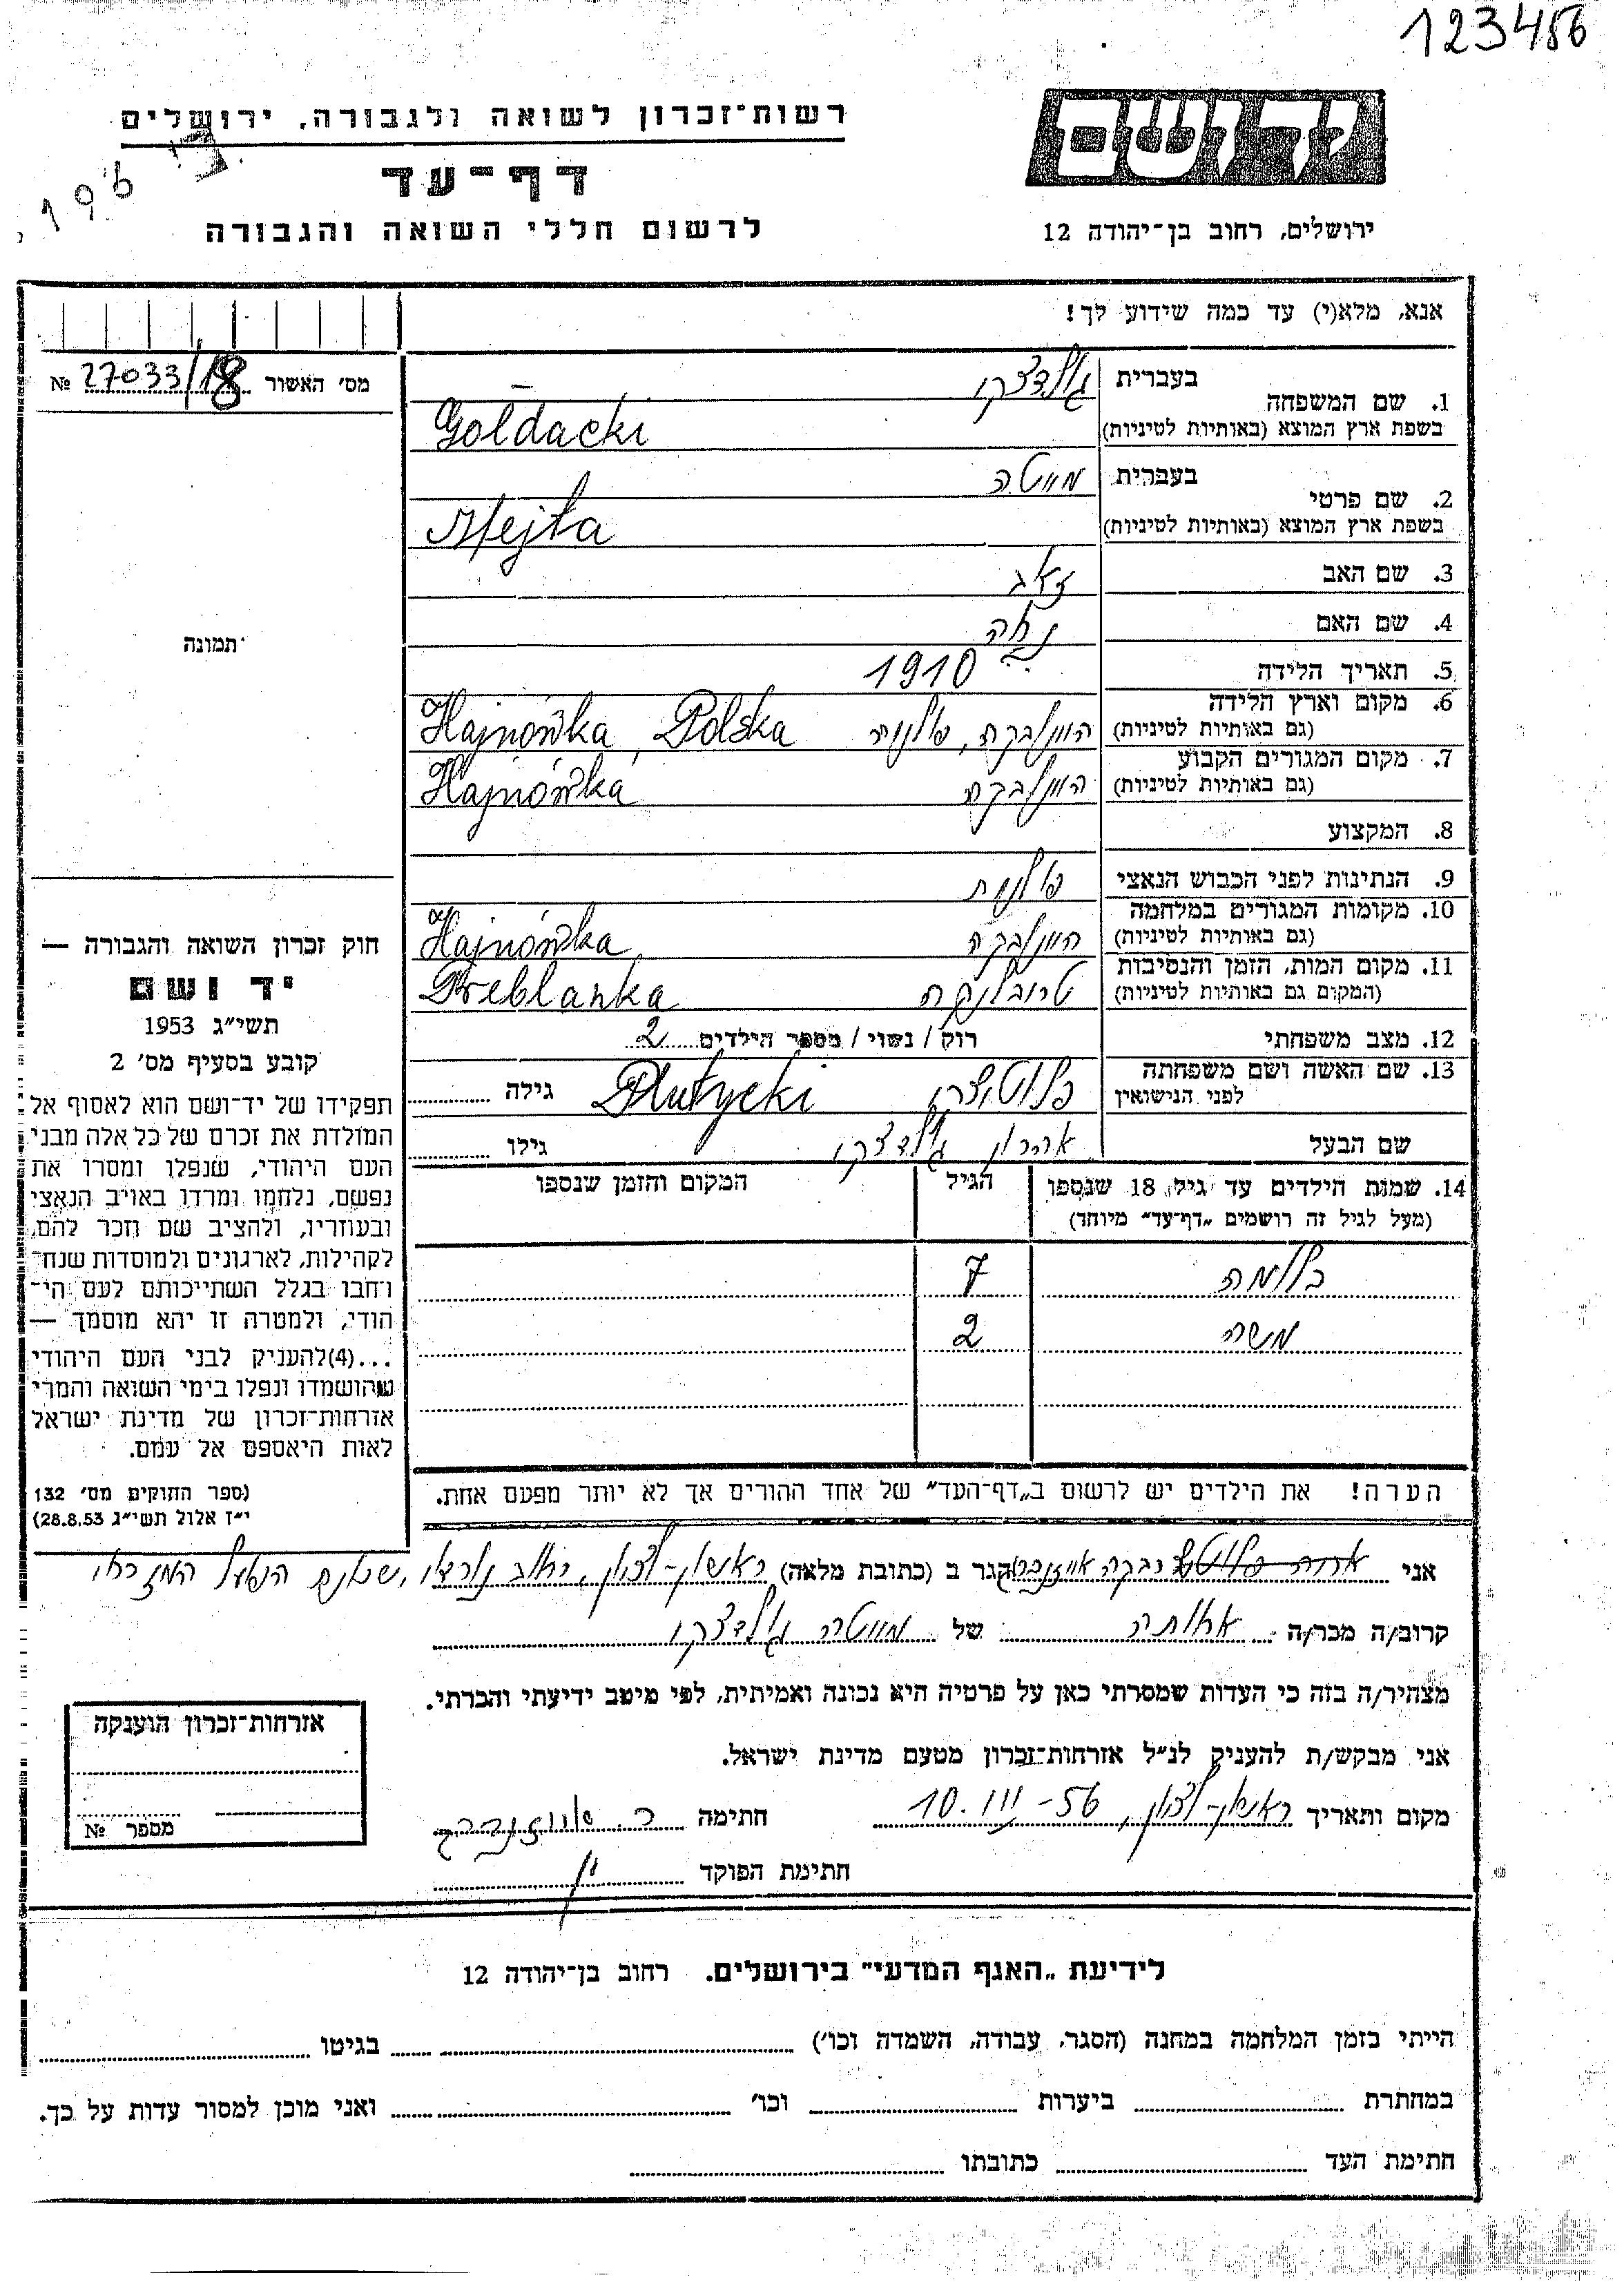 123456
יד ושם
רשות־זכרון לשואה ולגבורה, ירושלים
דף־עד
לרשום חללי השואה והגבורה
ירושלים, רחוב בן־יהודה 12
אנא, מלא(י) עד כמה שידוע לך!
מס׳ האשור № 27033/18
1. שם המשפחה
בעברית גולדצקי
בשפת ארץ המוצא (באותיות לטיניות) Goldacki
2. שם פרטי
בעברית מייטה
בשפת ארץ המוצא (באותיות לטיניות) Mejta
3. שם האב זאב
4. שם האם
5. תאריך הלידה 1910
6. מקום וארץ הלידה
(גם באותיות לטיניות) פולניה Hajnówka, Polska
7. מקום המגורים הקבוע
(גם באותיות לטיניות) Hajnówka
8. המקצוע
9. הנתינות לפני הכבוש הנאצי פולנית
10. מקומות המגורים במלחמה
(גם באותיות לטיניות) Hajnówka
11. מקום המות, הזמן והנסיבות
(המקום גם באותיות לטיניות) טרובלינקה Treblanka
12. מצב משפחתי רוק / נשוי / מספר הילדים 2
13. שם האשה ושם משפחתה
לפני הנישואין גילה
שם הבעל אהרון גולדצקי גילו
14. שמות הילדים עד גיל 18 שנספו הגיל המקום והזמן שנספו
(מעל לגיל זה רושמים „דף־עד״ מיוחד)
7
משה 2
הערה! את הילדים יש לרשום ב„דף־העד״ של אחד ההורים אך לא יותר מפעם אחת.
תמונה
חוק זכרון השואה והגבורה —
יד ושם
תשי״ג 1953
קובע בסעיף מס׳ 2
תפקידו של יד־ושם הוא לאסוף אל
המולדת את זכרם של כל אלה מבני
העם היהודי, שנפלו ומסרו את
נפשם, נלחמו ומרדו באויב הנאצי
ובעוזריו, ולהציב שם וזכר להם,
לקהילות, לארגונים ולמוסדות שנח־
רחבו בגלל השתייכותם לעם הי־
הודי, ולמטרה זו יהא מוסמך —
...(4) להעניק לבני העם היהודי
שהושמדו ונפלו בימי השואה והמרי
אזרחות־זכרון של מדינת ישראל
לאות היאספם אל עמם.
(ספר החוקים מס׳ 132
י״ז אלול תשי״ג 28.8.53)
אני רבקה הגר ב (כתובת מלאה) ראשון־לציון, שכונת הפועל המזרחי
קרוב/ה מכר/ה אחותה של מייטה גולדצקי
מצהיר/ה בזה כי העדות שמסרתי כאן על פרטיה היא נכונה ואמיתית, לפי מיטב ידיעתי והכרתי.
אני מבקש/ת להעניק לנ״ל אזרחות־זכרון מטעם מדינת ישראל.
מקום ותאריך ראשון־לציון, 10.III-56 חתימה
חתימת הפוקד
אזרחות־זכרון הוענקה
מספר №
לידיעת „האגף המדעי״ בירושלים. רחוב בן־יהודה 12
הייתי בזמן המלחמה במחנה (הסגר, עבודה, השמדה וכו׳) בגיטו
במחתרת ביערות וכו׳ ואני מוכן למסור עדות על כך.
חתימת העד כתובתו